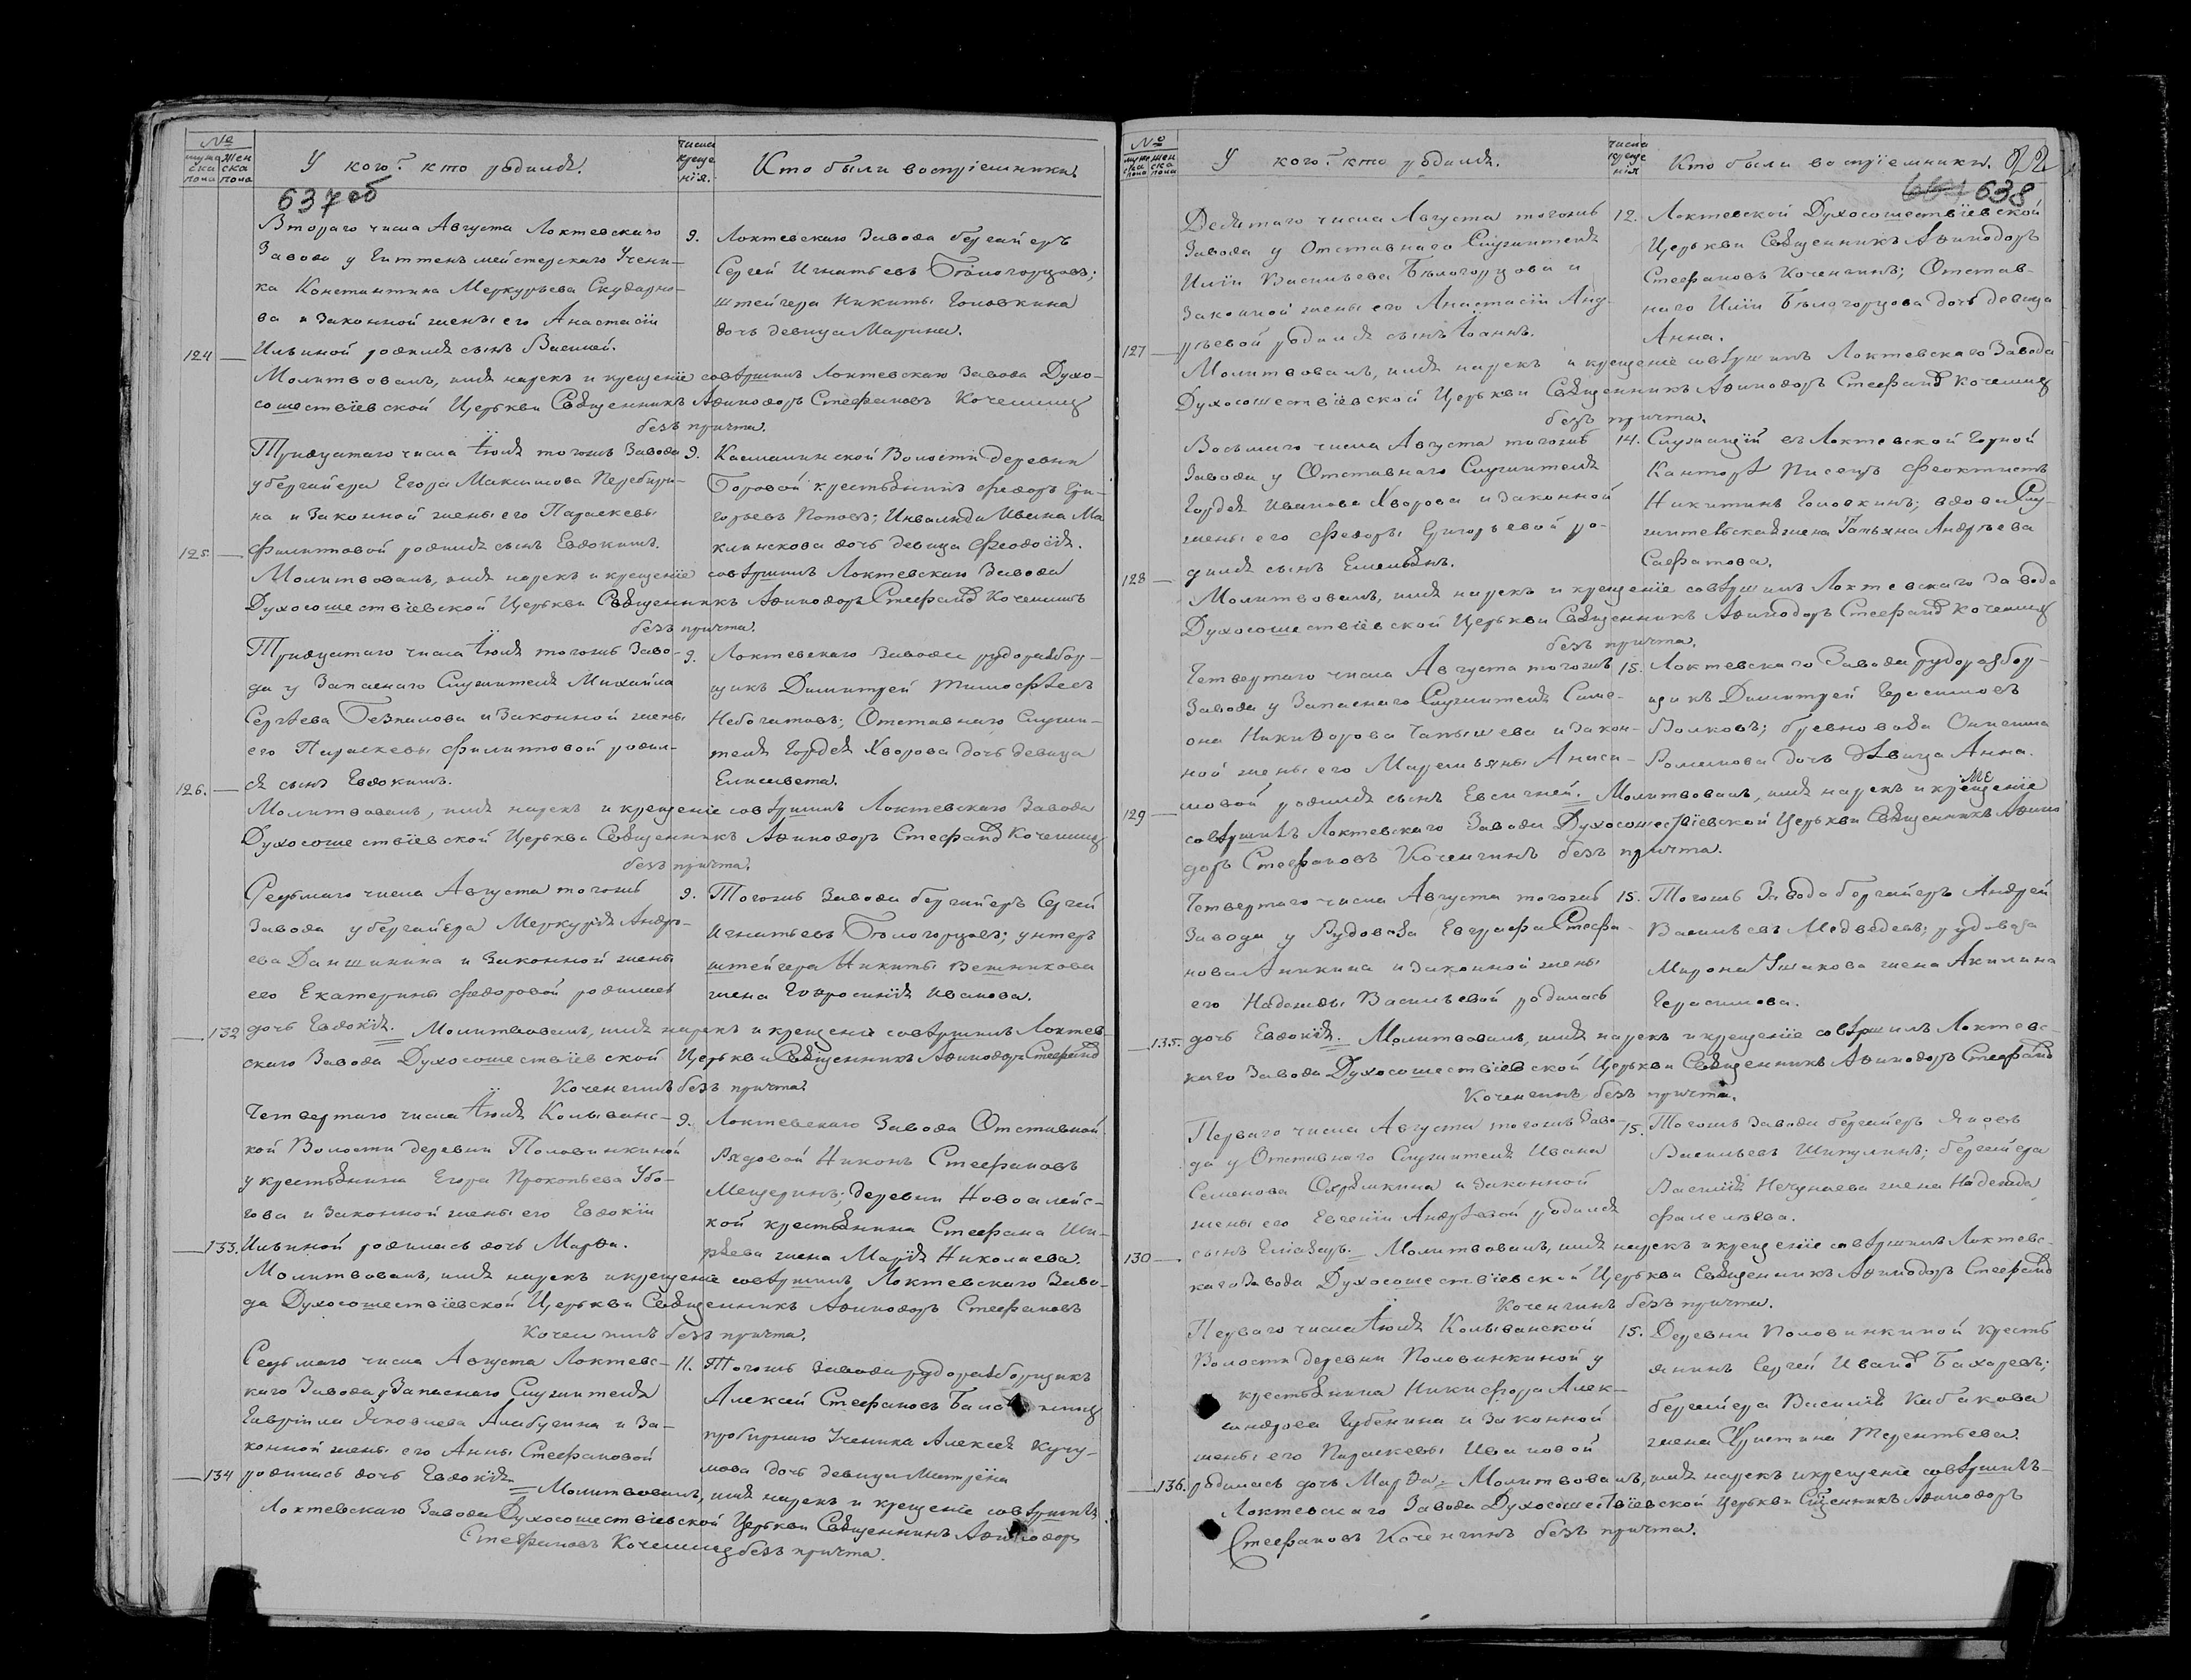 №
муже ска пола
жен ска пола
У кого? кто родился.
числа креще нія.
Кто были воспріемники
637 об
Втораго числа Августа Локтевскаго
Завода у Гиттенъ мейстерскаго Учени-
ка Константина Меркурьева Скударно-
ва и Законной жены его Анастасіи
124 — Ильиной родился сынъ Василій.
9. Локтевскаго Завода бергайеръ
Сергей Игнатьевъ Бѣлогорцовъ;
штейгера Никиты Головкина
дочь девица Марина.
Молитвовалъ, имя нарекъ и крещеніе совѣршилъ Локтевскаго Завода Духо-
сошествіевской Церькви Свѣщенникъ Афиподоръ Стефановъ Коченгинъ
безъ причта.
Тридцатаго числа Іюля тогожъ Завода
у бергайера Егора Максимова Перебири-
на и Законной жены его Параскевы
125. — Филиповой родился сынъ Евдокимъ.
9. Касмалинской Волости деревни
Боровой крестьянинъ Федоръ Гри-
горьевъ Поповъ; Инвалида Ивана Ма
клинскова дочь девица Феодосія.
Молитвовалъ, имя нарекъ и крещеніе совѣршилъ Локтевскаго Завода
Духосошествіевской Церькви Свѣщенникъ Афиподоръ Стефановъ Коченгинъ
безъ причта.
Тридцатаго числа Іюля тогожъ Заво-
да у Запаснаго Служителя Михайла
Сергѣева Безпалова и Законной жены
его Параскевы Филиповой родил-
126. — ся сынъ Евдокимъ.
9. Локтевскаго Завода рудоразбор-
щикъ Димитрей Тимофѣевъ
Небогатовъ; Отставнаго Служи-
теля Гордея Хворова дочь девица
Елисавета.
Молитвовалъ, имя нарекъ и крещеніе совѣршилъ Локтевскаго Завода
Духосошествіевской Церькви Свѣщенникъ Афиподоръ Стефановъ Коченгинъ
безъ причта.
Седьмаго числа Августа тогожъ
Завода у бергайера Меркурія Андре-
ева Даншинина и Законной жены
его Екатерины Федоровой родилась
— 132 дочь Евдокія.
9. Тогожъ Завода бергайеръ Сергей
Игнатьевъ Бѣлогорцовъ; унтеръ
штейгера Никиты Вешникова
жена Евфросинія Иванова.
Молитвовалъ, имя нарекъ и крещеніе совѣршилъ Локтев-
скаго Завода Духосошествіевской Церькви Свѣщенникъ Афиподоръ Стефановъ
Коченгинъ безъ причта.
Четвертаго числа Іюля Колыванс-
кой Волости деревни Половинкиной
у крестьянина Егора Прокопьева Убо-
гова и Законной жены его Евдокіи
— 133. Ильиной родилась дочь Марѳа.
9. Локтевскаго Завода Отставной
Рядовой Никонъ Стефановъ
Мещеринъ; деревни Новоалейс-
кой крестьянина Стефана Ши-
ряева жена Марія Николаева.
Молитвовалъ, имя нарекъ и крещеніе совѣршилъ Локтевскаго Заво-
да Духосошествіевской Церькви Свѣщенникъ Афиподоръ Стефановъ
Коченгинъ безъ причта.
Седьмаго числа Августа Локтевс-
каго Завода у Запаснаго Служителя
Гавріила Яковлева Алабугина и За-
конной жены его Анны Стефановой
— 134 родилась дочь Евдокія.
11. Тогожъ Завода рудоразборщикъ
Алексей Стефановъ
пробирнаго Ученика Алексея Кучу-
мова дочь девица Матрёна
Молитвовалъ, имя нарекъ и крещеніе совѣршилъ
Локтевскаго Завода Духосошествіевской Церькви Свѣщенникъ Афиподоръ
Стефановъ Коченгинъ безъ причта.
№
муже ска пола
жен ска пола
У кого? кто родился.
числа креще нія
Кто были воспріемники.
638
Десятаго числа Августа тогожъ
Завода у Отставнаго Служителя
Иліи Васильева Бѣлогорцова и
Законной жены его Анастасіи Анд-
127 — рѣевой родился сынъ Іоаннъ.
12. Локтевской Духосошествіевской
Церькви Свѣщенникъ Афиподоръ
Стефановъ Коченгинъ; Отстав-
наго Иліи Бѣлогорцова дочь девица
Анна.
Молитвовалъ, имя нарекъ и крещеніе совѣршилъ Локтевскаго Завода
Духосошествіевской Церькви Свѣщенникъ Афиподоръ Стефановъ Коченгинъ
безъ причта.
Восьмаго числа Августа тогожъ
Завода у Отставнаго Служителя
Гордея Иванова Хворова и Законной
жены его Федоры Григорьевой ро-
128 — дился сынъ Емельянъ.
14. Служащій въ Локтевской Горной
Канторѣ Писецъ Феоктистъ
Никитинъ Головкинъ; вдова Слу-
жительская жена Татьяна Андрѣева
Сафатова.
Молитвовалъ, имя нарекъ и крещеніе совѣршилъ Локтевскаго Завода
Духосошествіевской Церькви Свѣщенникъ Афиподоръ Стефановъ Коченгинъ
безъ причта.
Четвертаго числа Августа тогожъ
Завода у Запаснаго Служителя Симе-
она Никифорова Чапышева и Закон-
ной жены его Маремьяны Аниси-
129 — мовой родился сынъ Евсигней.
15. Локтевскаго Завода рудоразбор-
щикъ Димитрей Герасимовъ
Волковъ; бревновоза Онисима
Ромамова дочь дѣвица Анна.
Молитвовалъ, имя нарекъ и крещеніе
совѣршилъ Локтевскаго Завода Духосошествіевской Церькви Свѣщенникъ Афипо
доръ Стефановъ Коченгинъ безъ причта.
Четвертаго числа Августа тогожъ
Завода у Рудовоза Евграфа Стефа-
нова Аникина и Законной жены
его Надежды Васильевой родилась
— 135. дочь Евдокія.
15. Тогожъ Завода бергайеръ Андрей
Васильевъ Медведевъ; рудовоза
Мирона Ушакова жена Акилина
Герасимова.
Молитвовалъ, имя нарекъ и крещеніе совѣршилъ Локтевс-
каго Завода Духосошествіевской Церькви Свѣщенникъ Афиподоръ Стефановъ
Коченгинъ безъ причта.
Перваго числа Августа тогожъ Заво-
да у Отставнаго Служителя Ивана
Семенова Охрѣмкина и Законной
жены его Евгеніи Андрѣевой родился
130 — сынъ Елиазаръ.
15. Тогожъ Завода бергайеръ Яковъ
Васильевъ Шипулинъ; бергайера
Василія Нечунаева жена Надежда
Фалелѣева.
Молитвовалъ, имя нарекъ и крещеніе совѣршилъ Локтевс-
каго Завода Духосошествіевской Церькви Свѣщенникъ Афиподоръ Стефановъ
Коченгинъ безъ причта.
Перваго числа Іюля Колыванской
Волости деревни Половинкиной у
крестьянина Никифора Алек-
сандрова Губенина и Законной
жены его Параскевы Ивановой
— 136. родилась дочь Марѳа.
15. Деревни Половинкиной кресть
янинъ Сергей Ивановъ Бахоревъ;
бергайера Василія Кабакова
жена Христина Терентьева.
Молитвовалъ, имя нарекъ и крещеніе совѣршилъ
Локтевскаго Завода Духосошествіевской Церькви Сщенникъ Афиподоръ
Стефановъ Коченгинъ безъ причта.